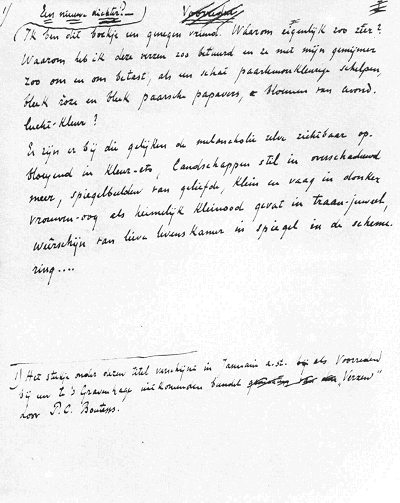 1) Een nieuwe dichter?— Voorrede
(Ik ben dit boekje een genegen vriend. Waarom eigenlijk zoo zeer?
Waarom heb ik deze verzen zoo betuurd en ze met mijn gemijmer
zoo om en om betast, als een schat paarlemoerkleurige schelpen,
bleek roze en bleek paarsche papavers, bloemen van avond-
lucht-kleur?
Er zijn er bij die gelijken de melancholie zelve zichtbaar op-
bloeyend in kleur-ets, landschappen stil in overschaduwd
meer, spiegelbeelden van geliefde, klein en vaag in donker
vrouwen-oog als heimelijk kleinood gevat in traan-juweel,
weêrschijn van lieve levenskamer in spiegel in de scheme-
ring....
1) Het stukje onder dezen titel verschijne in Januari a.st. bij als Voorreden
bij een te 's Gravenhage uitkomenden bundel "Verzen"
door P.C. Boutens.